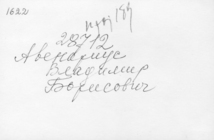 1622
28712
Авенариус
Владимир
Борисович